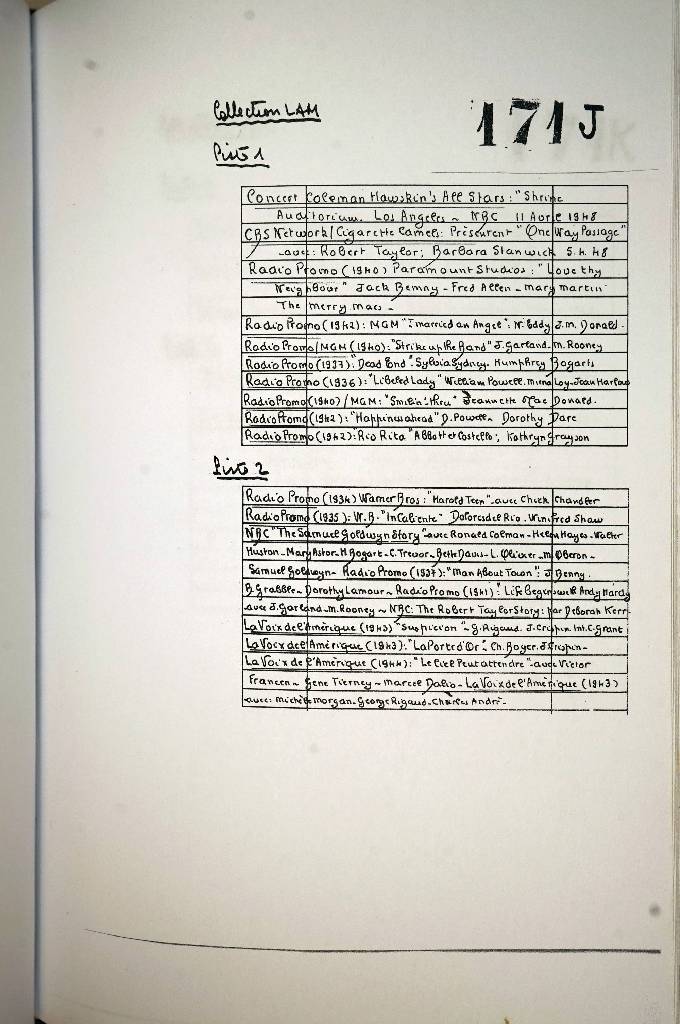 Collection LAM
171 J
Piste 1
Concert Coleman Hawskin's All Stars: "Shrine
Auditorium. Los Angeles ~ NBC 11 Avril 1948
CBS Network/Cigarette Camels: Présentent "One Way Passage"
avec: Robert Taylor; Barbara Stanwick 5.4.48
Radio Promo (1940) Paramount Studios: "Love thy
Neighbour" Jack Benny - Fred Allen - mary martin
The merry macs -
Radio Promo (1942): MGM "I married an Angel": N. Eddy J.m. Donald.
Radio Promo/MGM (1940): "Strike up the Band" J. Garland. m. Rooney
Radio Promo (1937): "Dead End". Sylvia Sydney. Humphrey Bogart
Radio Promo (1936): "Libeled Lady" William Powell. myrna Loy-Jean Harlow
Radio Promo (1940) / MGM: "Smilin' thru" Jeannette Mac Donald.
Radio Promo (1942): "Happiness ahead" D. Powell. Dorothy Dare
Radio Promo (1942): "Rio Rita" Abbott et Costello; Kathryn Grayson
Piste 2
Radio Promo (1934) Warner Bros: "Harold Teen" - avec Chick Chandler
Radio Promo (1935): W.B. "In Caliente" Dolores del Rio. Winifred Shaw
NBC "The Samuel Goldwyn Story" avec Ronald Colman - Helen Hayes - Walter
Huston - Mary Astor - H. Bogart - C. Trevor - Bette Davis - L. Olivier - m. Oberon -
Samuel Goldwyn - Radio Promo (1937): "Man About Town": J. Benny.
B. Grabble - Dorothy Lamour ~ Radio Promo (1941): Life Begins with Andy Hardy
avec J. Garland - m. Rooney ~ NBC: The Robert Taylor Story: par Deborah Kerr
La Voix de l'Amérique (1943) "Suspicion" ~ G. Rigaud. J. Crispin. Int. C. Grant
La Voix de l'Amérique (1943): "La Porte d'Or". Ch. Boyer. J. Crispin -
La Voix de l'Amérique (1944): "Le Ciel Peut attendre" - avec Victor
Francen ~ Gene Tierney ~ marcel Dalio - La Voix de l'Amérique (1943)
avec: michèle morgan - George Rigaud - Charles André -